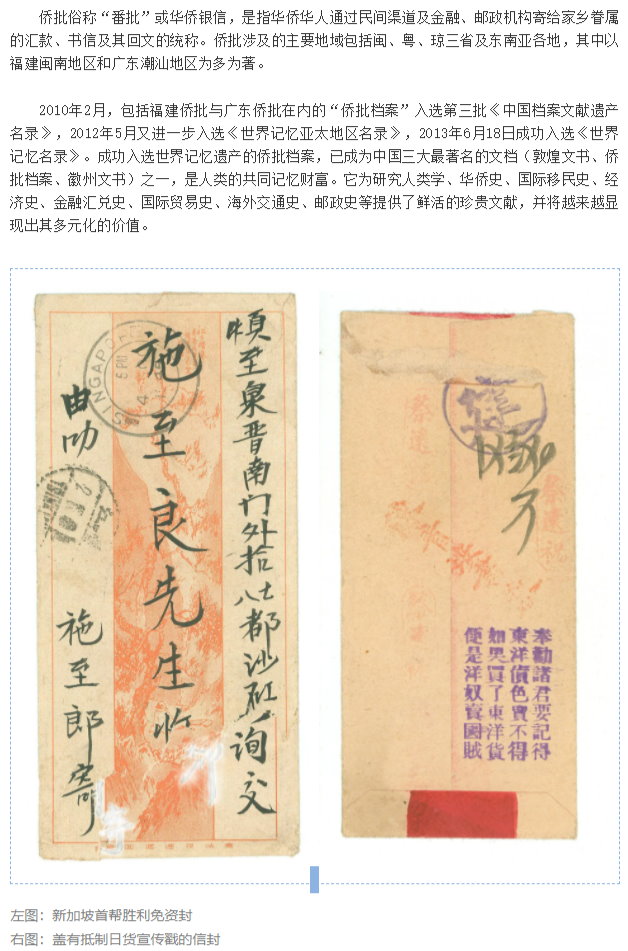 侨批俗称“番批”或华侨银信，是指华侨华人通过民间渠道及金融、邮政机构寄给家乡眷属
的汇款、书信及其回文的统称。侨批涉及的主要地域包括闽、粤、琼三省及东南亚各地，其中以
福建闽南地区和广东潮汕地区为多为著。
2010年2月，包括福建侨批与广东侨批在内的“侨批档案”入选第三批《中国档案文献遗产
名录》，2012年5月又进一步入选《世界记忆亚太地区名录》，2013年6月18日成功入选《世界
记忆名录》。成功入选世界记忆遗产的侨批档案，已成为中国三大最著名的文档（敦煌文书、侨
批档案、徽州文书）之一，是人类的共同记忆财富。它为研究人类学、华侨史、国际移民史、经
济史、金融汇兑史、国际贸易史、海外交通史、邮政史等提供了鲜活的珍贵文献，并将越来越显
现出其多元化的价值。
至泉晋南门外拾八七都沙 询交
施至良先生收
由叻
施至郎寄
SINGAPO
奉勸諸君要記得
東洋債色實不得
如果買了東洋貨
便是洋奴賣國賊
左图：新加坡首帮胜利免资封
右图：盖有抵制日货宣传戳的信封